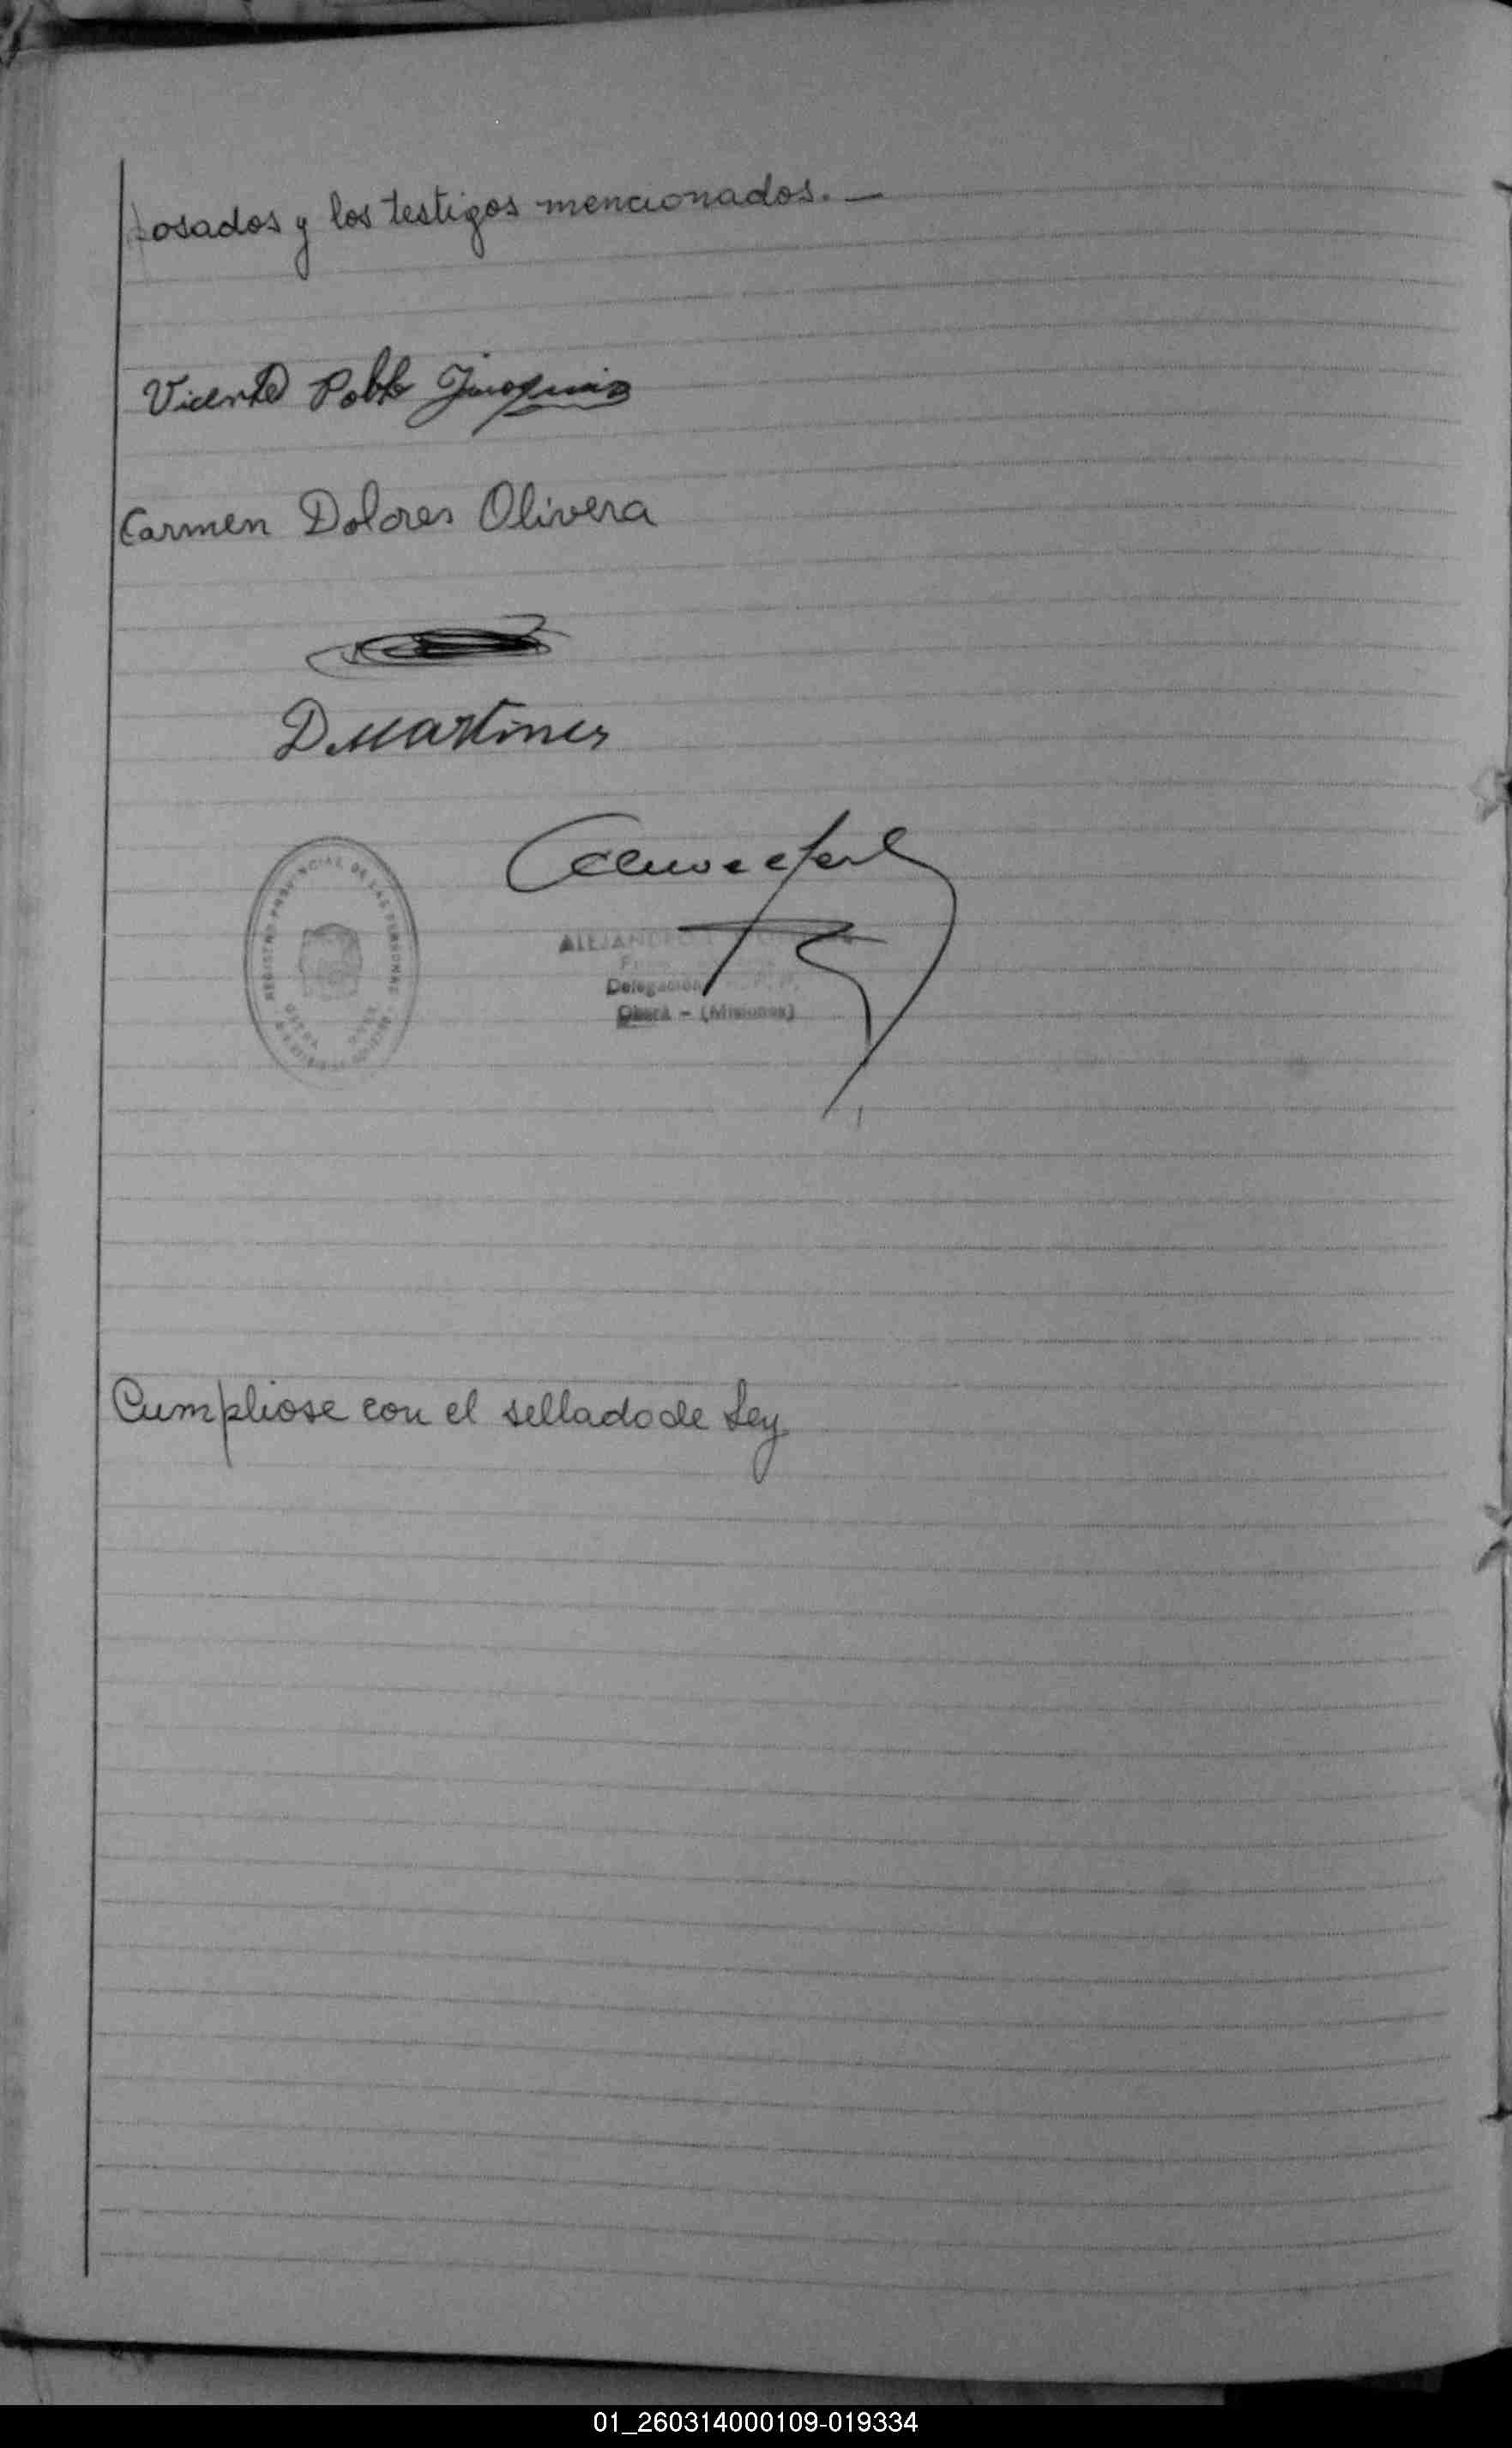 posados y los testigos mencionados. —
Vicente Pablo
Carmen Dolores Olivera
D. Martinez
REGISTRO PROVINCIAL DE LAS PERSONAS
ALEJANDRO
Delegación
Oberá - (Misiones)
Cumpliose con el sellado de Ley
01_260314000109-019334